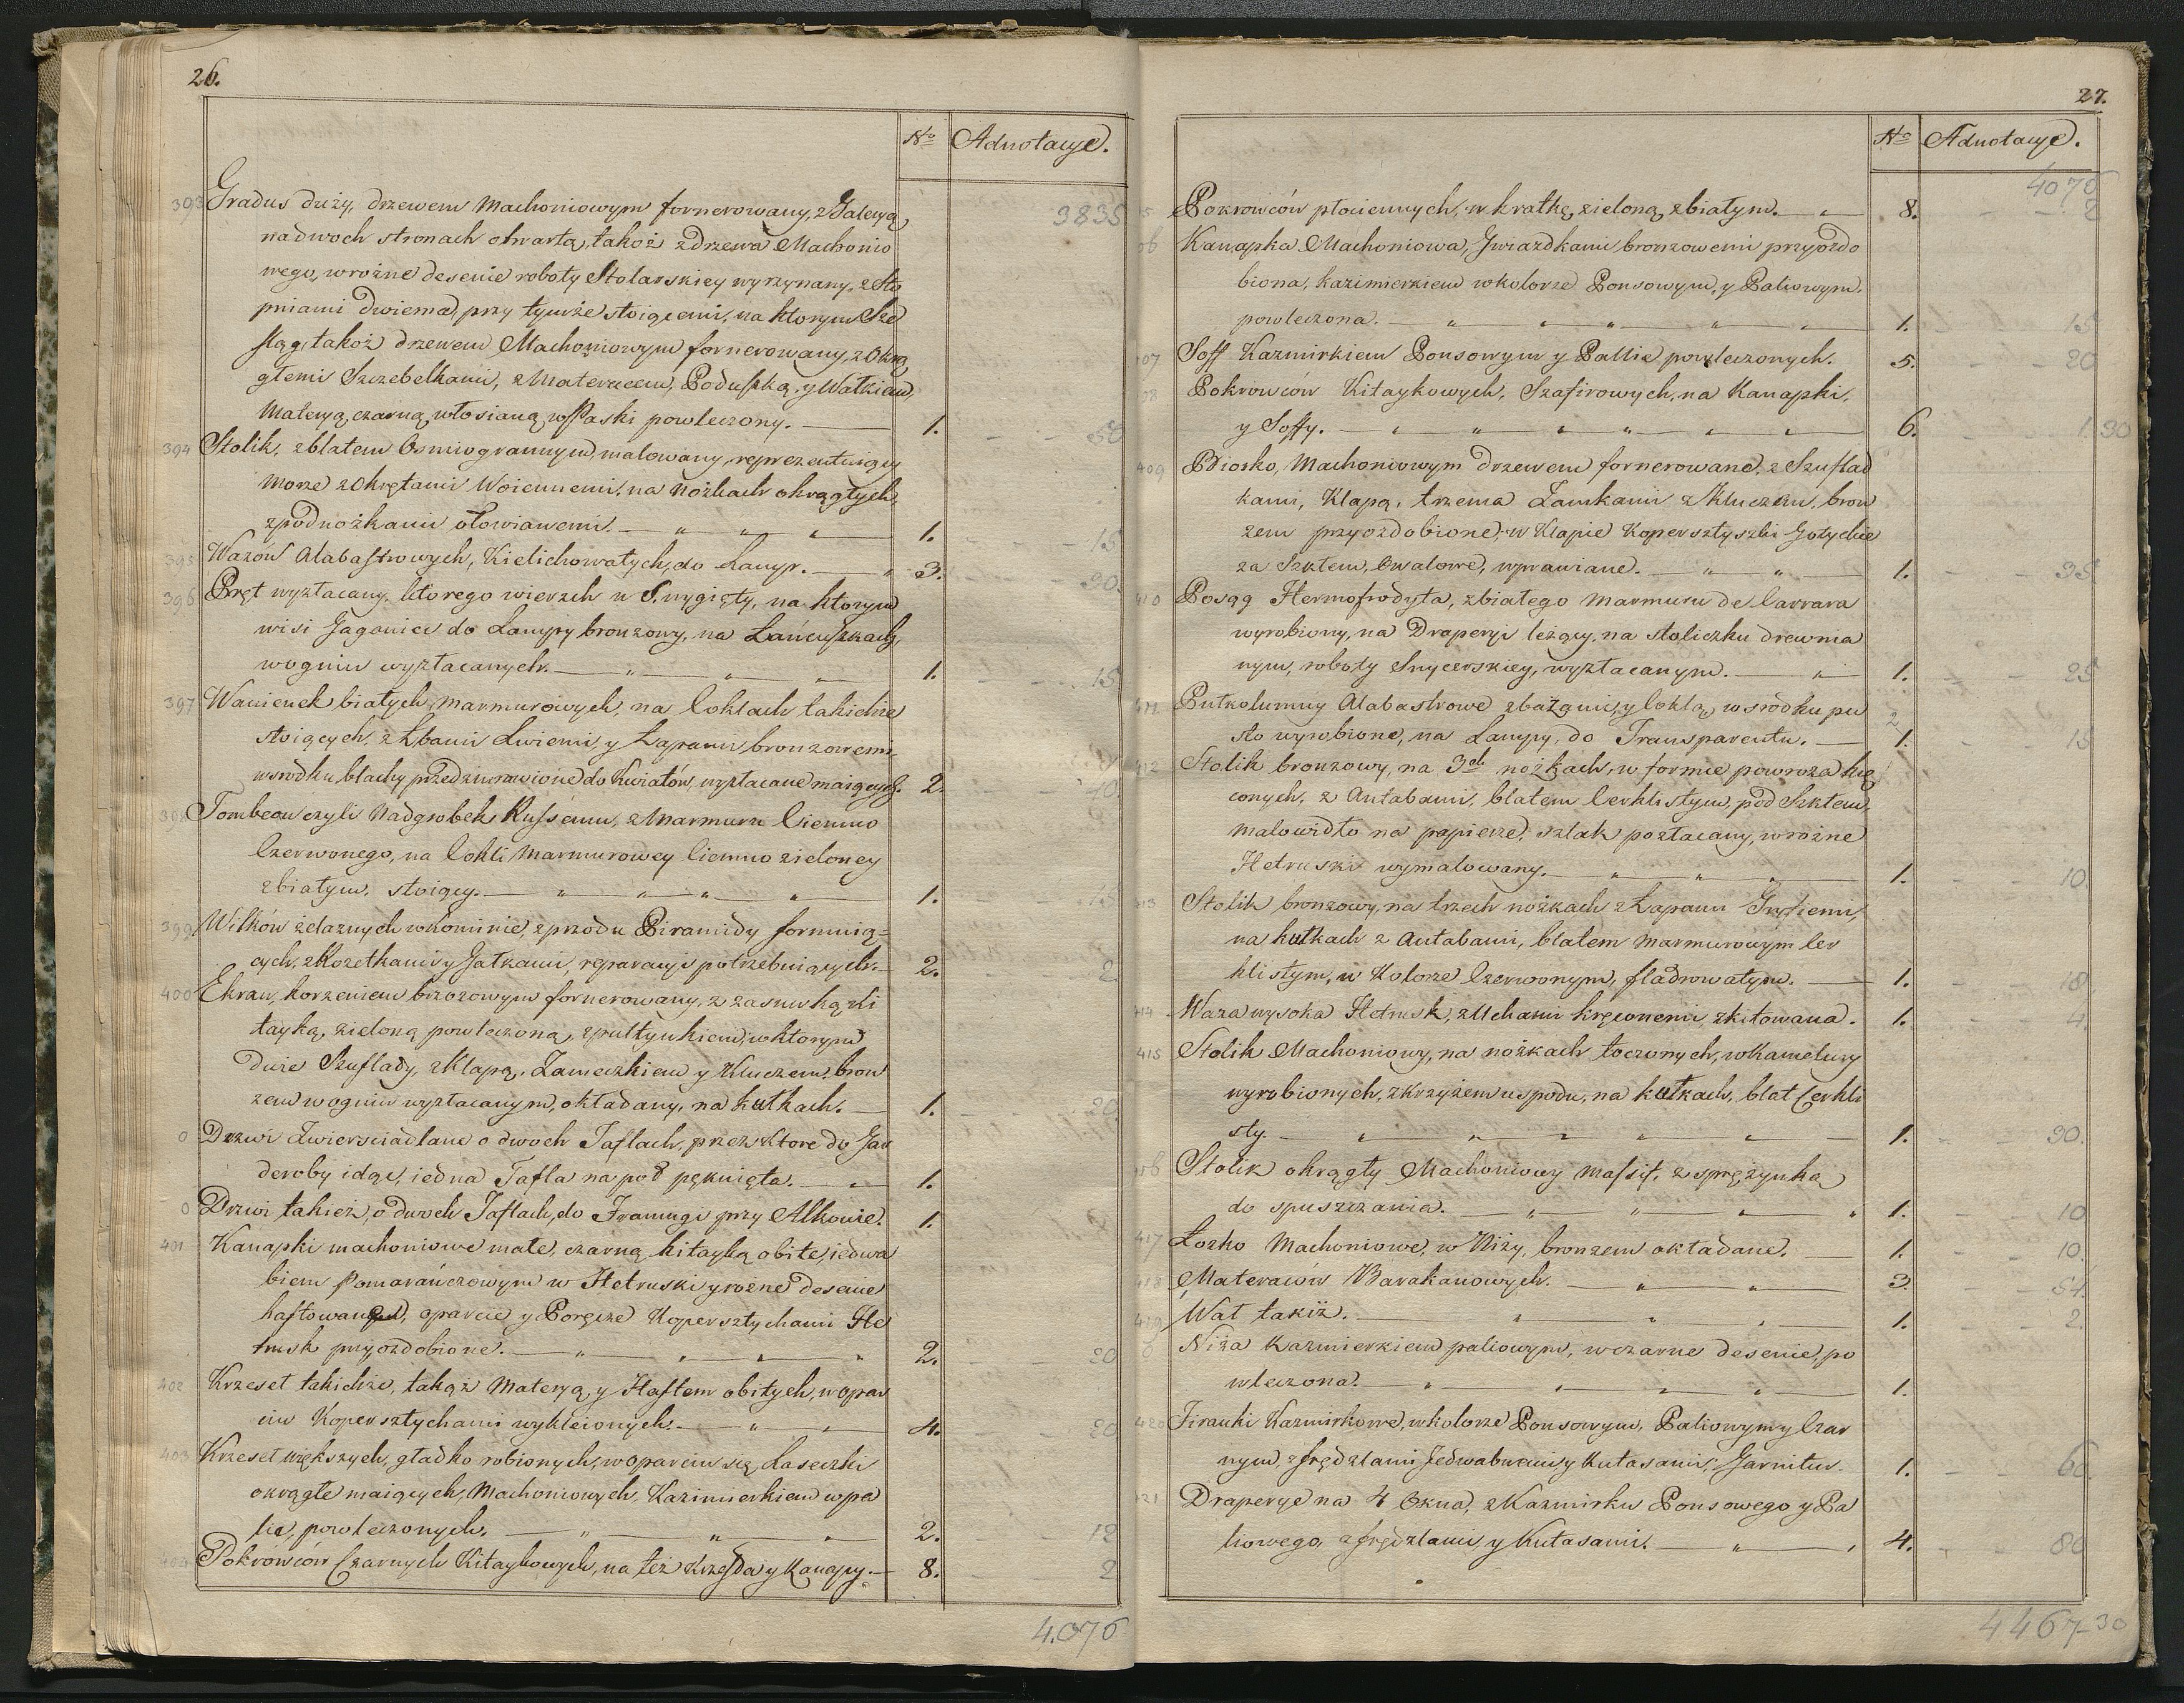 26.
No Adnotacye.
3835
393 Gradus duży, drzewem Machoniowym fornerowany, z Galeryą
na dwoch stronach otwartą, takoż z Drzewa Machonio
wego, w rożne desenie roboty Stolarskiey wyrzynany, z Sto
pniami dwiema, przy tymże stoiącemi, na ktorym Sze
sląg, takoż drzewem Machoniowym fornerowany, z Okrą
głemi Szczebelkami, z Materacem, Poduszką, y Wałkiem,
Materyą czarną włosianą w Paski powleczony. — 1. - - 50
394 Stolik, z blatem Osmiogrannym, malowany, reprezentuiący
Morze z Okrętami Woiennemi, na Nożkach okrągłych,
z podnożkami ołowianemi. — " " " 1. - - 15
395 Wazów Alabastrowych, Kielichowatych, do Lamp. — " 3. - - 30.
396 Pręt wyzłacany, ktorego wierzch w S, wygięty, na ktorym
wisi Gaganiec do Lampy bronzowy, na Łańcuszkach,
w ogniu wyzłacanych. — " " " 1. - - 15
397 Wanienek białych marmurowych, na Coklach takichże
stoiących, z Łbami Lwiemi, y Łapami bronzowemi,
w srodku blachy przedziurawione do Kwiatów, wyzłacane maiących. 2. - - 40.
398 Tombeau czyli Nadgrobek Russeau, z Marmuru Ciemno
Czerwonego, na Cokli Marmurowey Ciemno zieloney
z białym, stoiący. — " " " " 1. - - 15
399 Wilków żelaznych w kominie, z przodu Piramidy formuią=
cych, z Rozetkami y Gałkami, reparacyi potrzebuiących. — 2. - - 2
400 Ekran, korzeniem brzozowym fornerowany, z zasuwką Ki
tayką, zieloną powleczoną, z pultynkiem, w ktorym
dwie Szuflady, z Klapą, Zameczkiem y Kluczem, bron
zem w ogniu wyzłacanym, okładany, na kułkach. — 1. - - 20.
0 Drzwi Zwierciadlane o dwoch Taflach, przez ktore do Gar
deroby idąc, iedna Tafla na poł pęknięta. — " 1.
0 Drzwi takież, o dwoch Taflach, do Framugi przy Alkowie. 1.
401 Kanapki machoniowe małe, czarną kitayką obite, iedwa
biem Pomarańczowym w Hetruski y rożne desenie
haftowanym, oparcie y Poręcze Kopersztychami He
trusk przyozdobione. — " " " " 2. - - 20
402 Krzeseł takichże, takąż Materyą, y Haftem obitych, w opar
ciu Kopersztychami wykleionych. — " " 4. - - 20
403 Krzeseł większych, gładko robionych, w oparciu się Laseczki
okrągłe maiących, Machoniowych, Kazimierkiem w pa
lie, powleczonych. — " " " 2. - - 12
404 Pokrowców Czarnych Kitaykowych, na też Krzesła y Kanapy. — 8. - 2
4.076
27.
No Adnotacye.
4076
Pokrowców płociennych, w kratkę zieloną z białym. — " 8. - - 2
06 Kanapka Machoniowa, Gwiazdkami bronzowemi przyozdo
biona, kazimierkiem w kolorze Ponsowym, y Paliowym,
powleczona. — " " " " " 1. - - 15
07 Soff Kazmirkiem Ponsowym y Pallie powleczonych. 5. - - 20
08 Pokrowców Kitaykowych, Szafirowych, na Kanapki,
y Soffy. — " " " " " " 6. - - 1.30
409 Bdiorko, Machoniowym drzewem fornerowane, z Szuflad
kami, Klapą, trzema Zamkami z Kluczem, bron
zem przyozdobione, w Klapie Kopersztyszki Gotyckie
za Szkłem, Owalowe, wprawiane. — " " 1. - - 35
410 Posąg Hermofrodyta, z białego Marmuru de Carrara
wyrobiony, na Draperyi leżący, na stoliczku drewnia
nym, roboty Snycerskiey, wyzłacanym. — " 1. - - 25
411 Pułkolumny Alabastrowe z bazą y Coklą, w srodku pu
sto wyrobione, na Lampy, do Transparentu. — 2 1. - - 15
412 Stolik bronzowy, na 3ch nożkach, w formie powroza krę
conych, z Antabami, blatem Cerklistym, pod Szkłem,
Malowidło na papierze, szlak pozłacany, w rożne
Hetruski wymalowany. — " " " 1. - - 10.
413 Stolik bronzowy, na trzech nożkach z Łapami Gryfiemi,
na kułkach z Antabami, blatem Marmurowym Cer
klistym, w Kolorze Czerwonym, fladrowatym. — 1. - - 18
414 Waza wysoka Hetrusk, z Uchami kręconemi zkitowana. 1. - - 4.
415 Stolik Machoniowy, na nożkach toczonych, w Kamelury
wyrobionych, z Krzyżem u spodu, na kułkach, blat Cerkli
sty. — " " " " " — 1. - - 30.
416 Stolik okrągły Machoniowy Massif, z sprężynką
do spuszczania. — " " " " 1. - - 10
417 Łozko Machoniowe, w Niży, bronzem okładane. — 1. - - 10.
418 Materaców Barakanowych. — " " 3. - - 54.
419 Wał takiż. — " " " 1. - - 2.
0 Niża Kazmierkiem paliowym, w czarne desenie, po
wleczona. — " " " " 1.
420 Firanki Kazmirkowe, w kolorze Ponsowym, Paliowym y Czar
nym, z frędzlami Jedwabnemi y Kutasami, Garnitur. 1. - - 60
421 Draperye na 4 Okna, z Kazmirku Ponsowego y Pa
liowego, z frędzlami y Kutasami. — " " 4. - - 80
4467-30